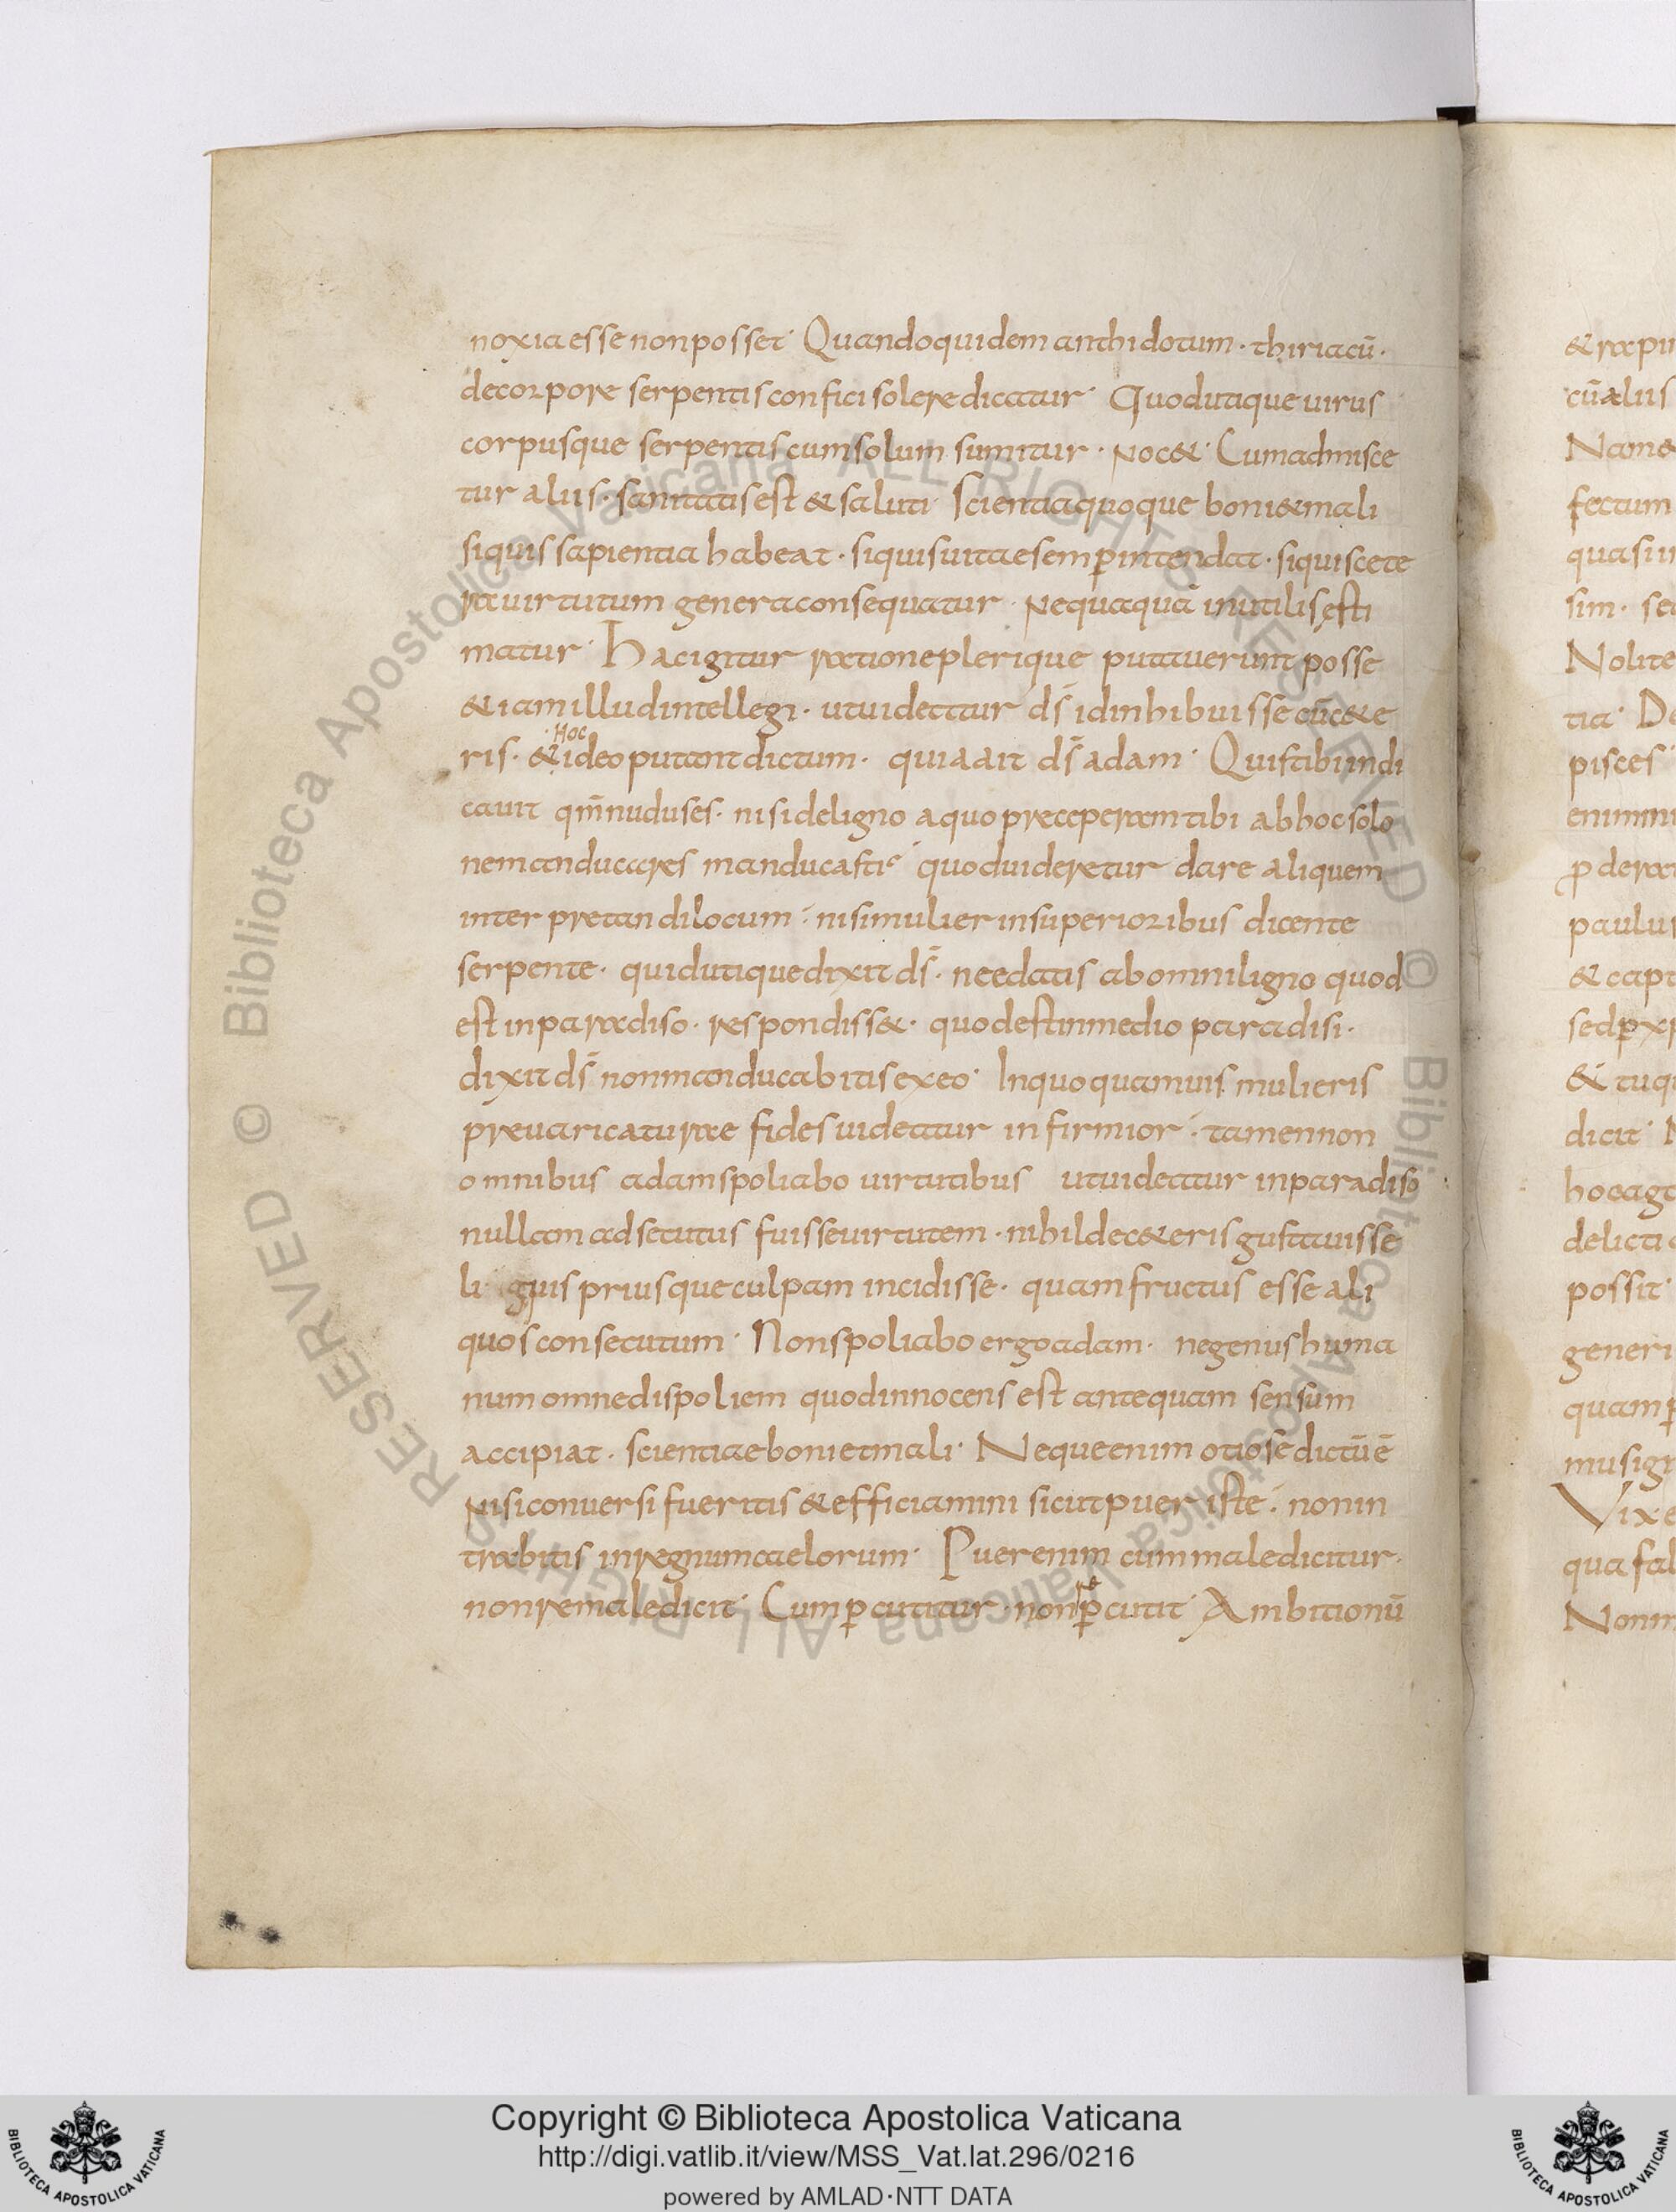 noxia esse non posset· Quandoquidem anthidotum· thiriacū·
de corpore serpentis confici solere dicatur· Quod utique uirus
corpusque serpentis cum solum sumitur· noc&· Cum admisce
tur aliis· sanitatis est & saluti· scientia quoque boni & mali
siquis sapientia habeat· siquis uitae semꝑ intendat· siquis cete
ra uirtutum genera consequatur· Nequaquā inutilis ęsti
matur· Hac igitur ratione plerique putauerunt posse
&iam illud intellegi· ut uideatur ds̄ id inhibuisse cū c&e
ris· & Hoc ideo putant dictum· quia ait ds̄ adam· Quis tibi indi
cauit qm̄ nudus es· nisi de ligno a quo preceperam tibi ab hoc solo
ne manducares manducasti· quod uideretur dare aliquem
interpretandi locum· nisi mulier in superioribus dicente
serpente· quid utique dixit ds̄· ne edatis ab omni ligno quod
est in paradiso· respondiss&· quod est in medio paradisi·
dixit ds̄ non manducabitis ex eo· In quo quamuis mulieris
preuaricaturae fides uideatur infirmior· tamen non
omnibus adam spoliabo uirtutibus ut uideatur in paradiso
nullam adsecutus fuisse uirtutem· nihil de c&eris gustauisse
li gnis priusque culpam incidisse· quam fructus esse ali
quos consecutum· Non spoliabo ergo adam· ne genus huma
num omne dispoliem quod innocens est antequam sensum
accipiat· scientiae boni et mali· Neque enim otiose dictū ē
Nisi conuersi fueritis & efficiamini sicut puer iste· non in
trabitis in regnum caelorum· Puer enim cum maledicitur·
non remaledicit· Cum ꝑcutitur· non reꝑcutit· Ambitionū
& rapi
cū aliis
Nam&
fectum
quasi
sim· se
Nolite
tia· De
pisces
enim
paulus
& capt
& tu qu
dicit·
hoc ag
delicta
possit·
generi
quam
mus ig
Vixe
qua fal
Non
© Biblioteca Apostolica Vaticana ALL RIGHTS RESERVED
© Biblioteca Apostolica Vaticana ALL RIGHTS RESERVED
Copyright © Biblioteca Apostolica Vaticana
http://digi.vatlib.it/view/MSS_Vat.lat.296/0216
powered by AMLAD·NTT DATA
BIBLIOTECA APOSTOLICA VATICANA
BIBLIOTECA APOSTOLICA VATICANA